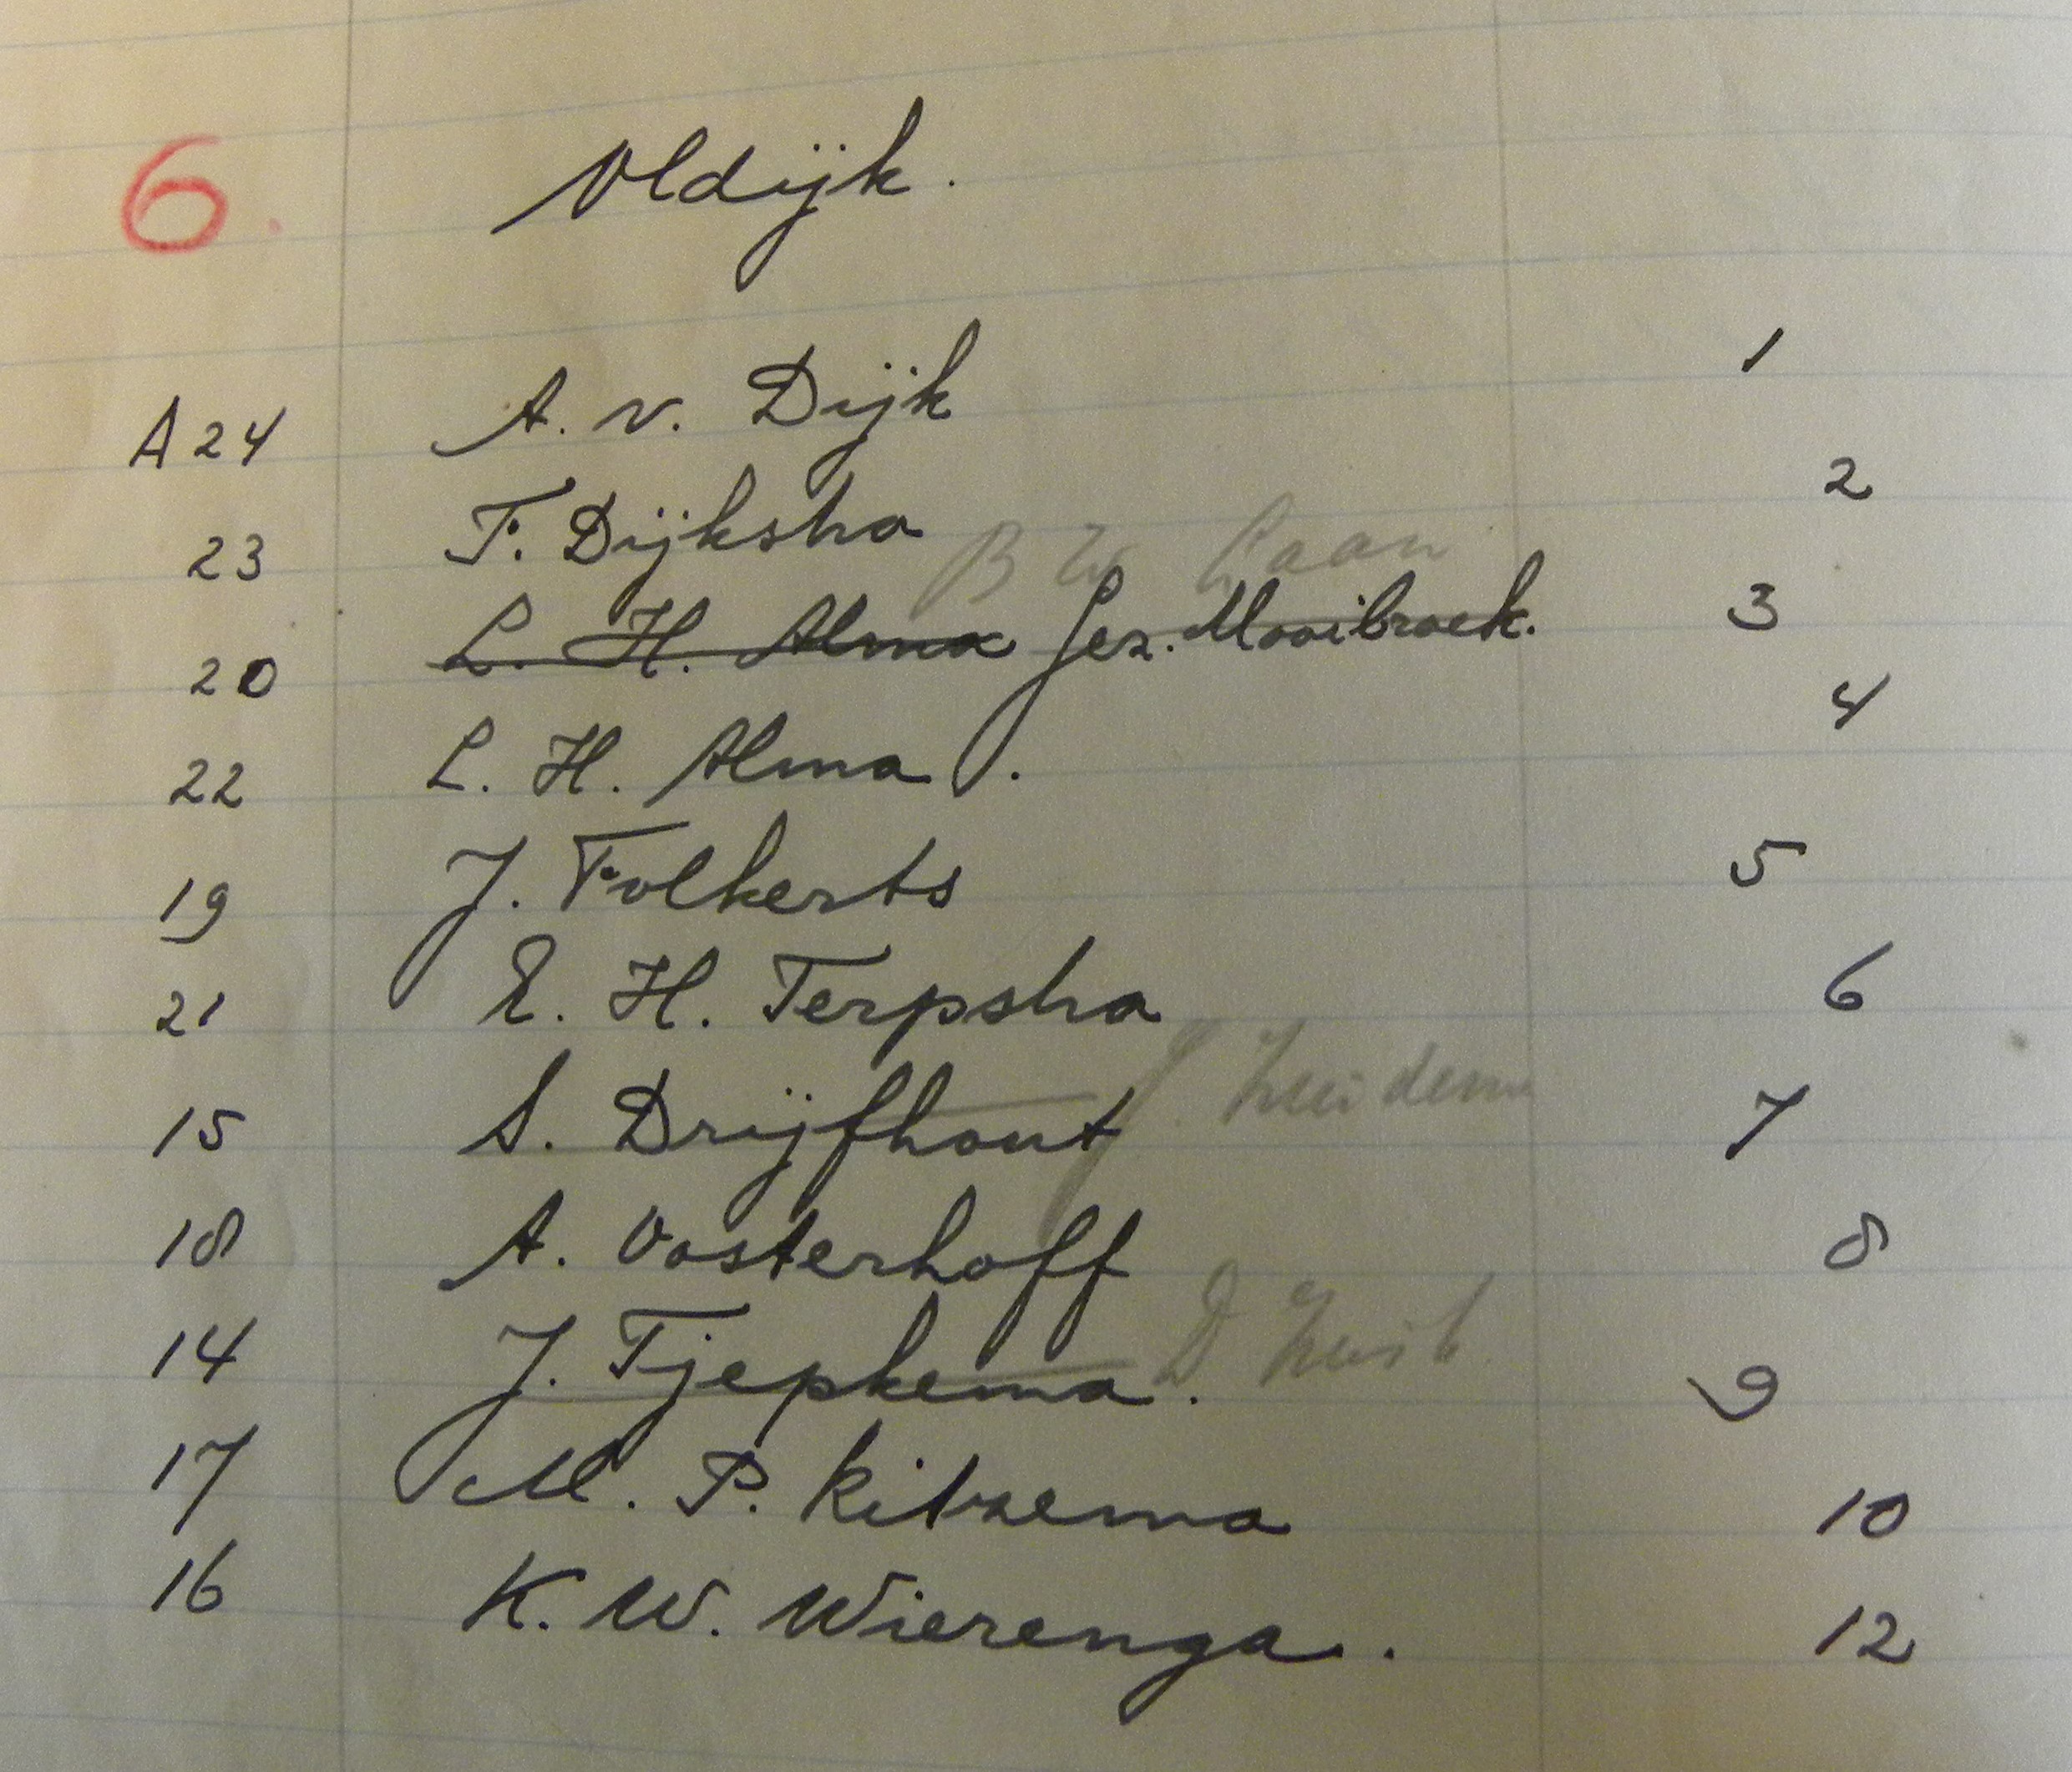 6. Oldijk.
A 24 A. v. Dijk 1
23 F. Dijkstra 2
B Laan
20 L. H. Alma Jez. Mooibroek. 3
22 L. H. Alma. 4
19 J. Folkerts 5
21 E. H. Terpstra 6
15 S. Drijfhout 7
18 A. Oosterhoff 8
14 J. Tjepkema. D 9
17 M. P. Ritzema 10
16 K. W. Wierenga. 12